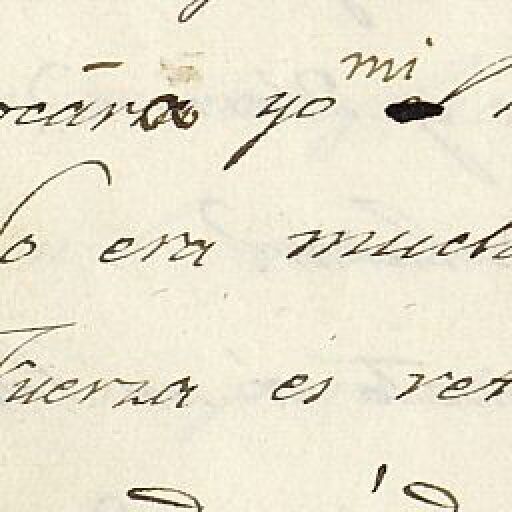 ocára yo mi
o era much
fuerza es ret